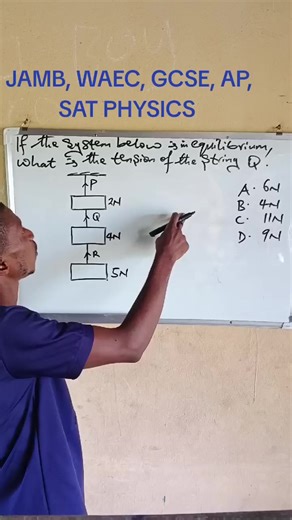 JAMB, WAEC, GCSE, AP,
SAT PHYSICS
If the System below is in equilibrium,
what is the tension of the string Q.
P
2N
Q
4N
R
5N
A. 6N
B. 4N
C. 11N
D. 9N